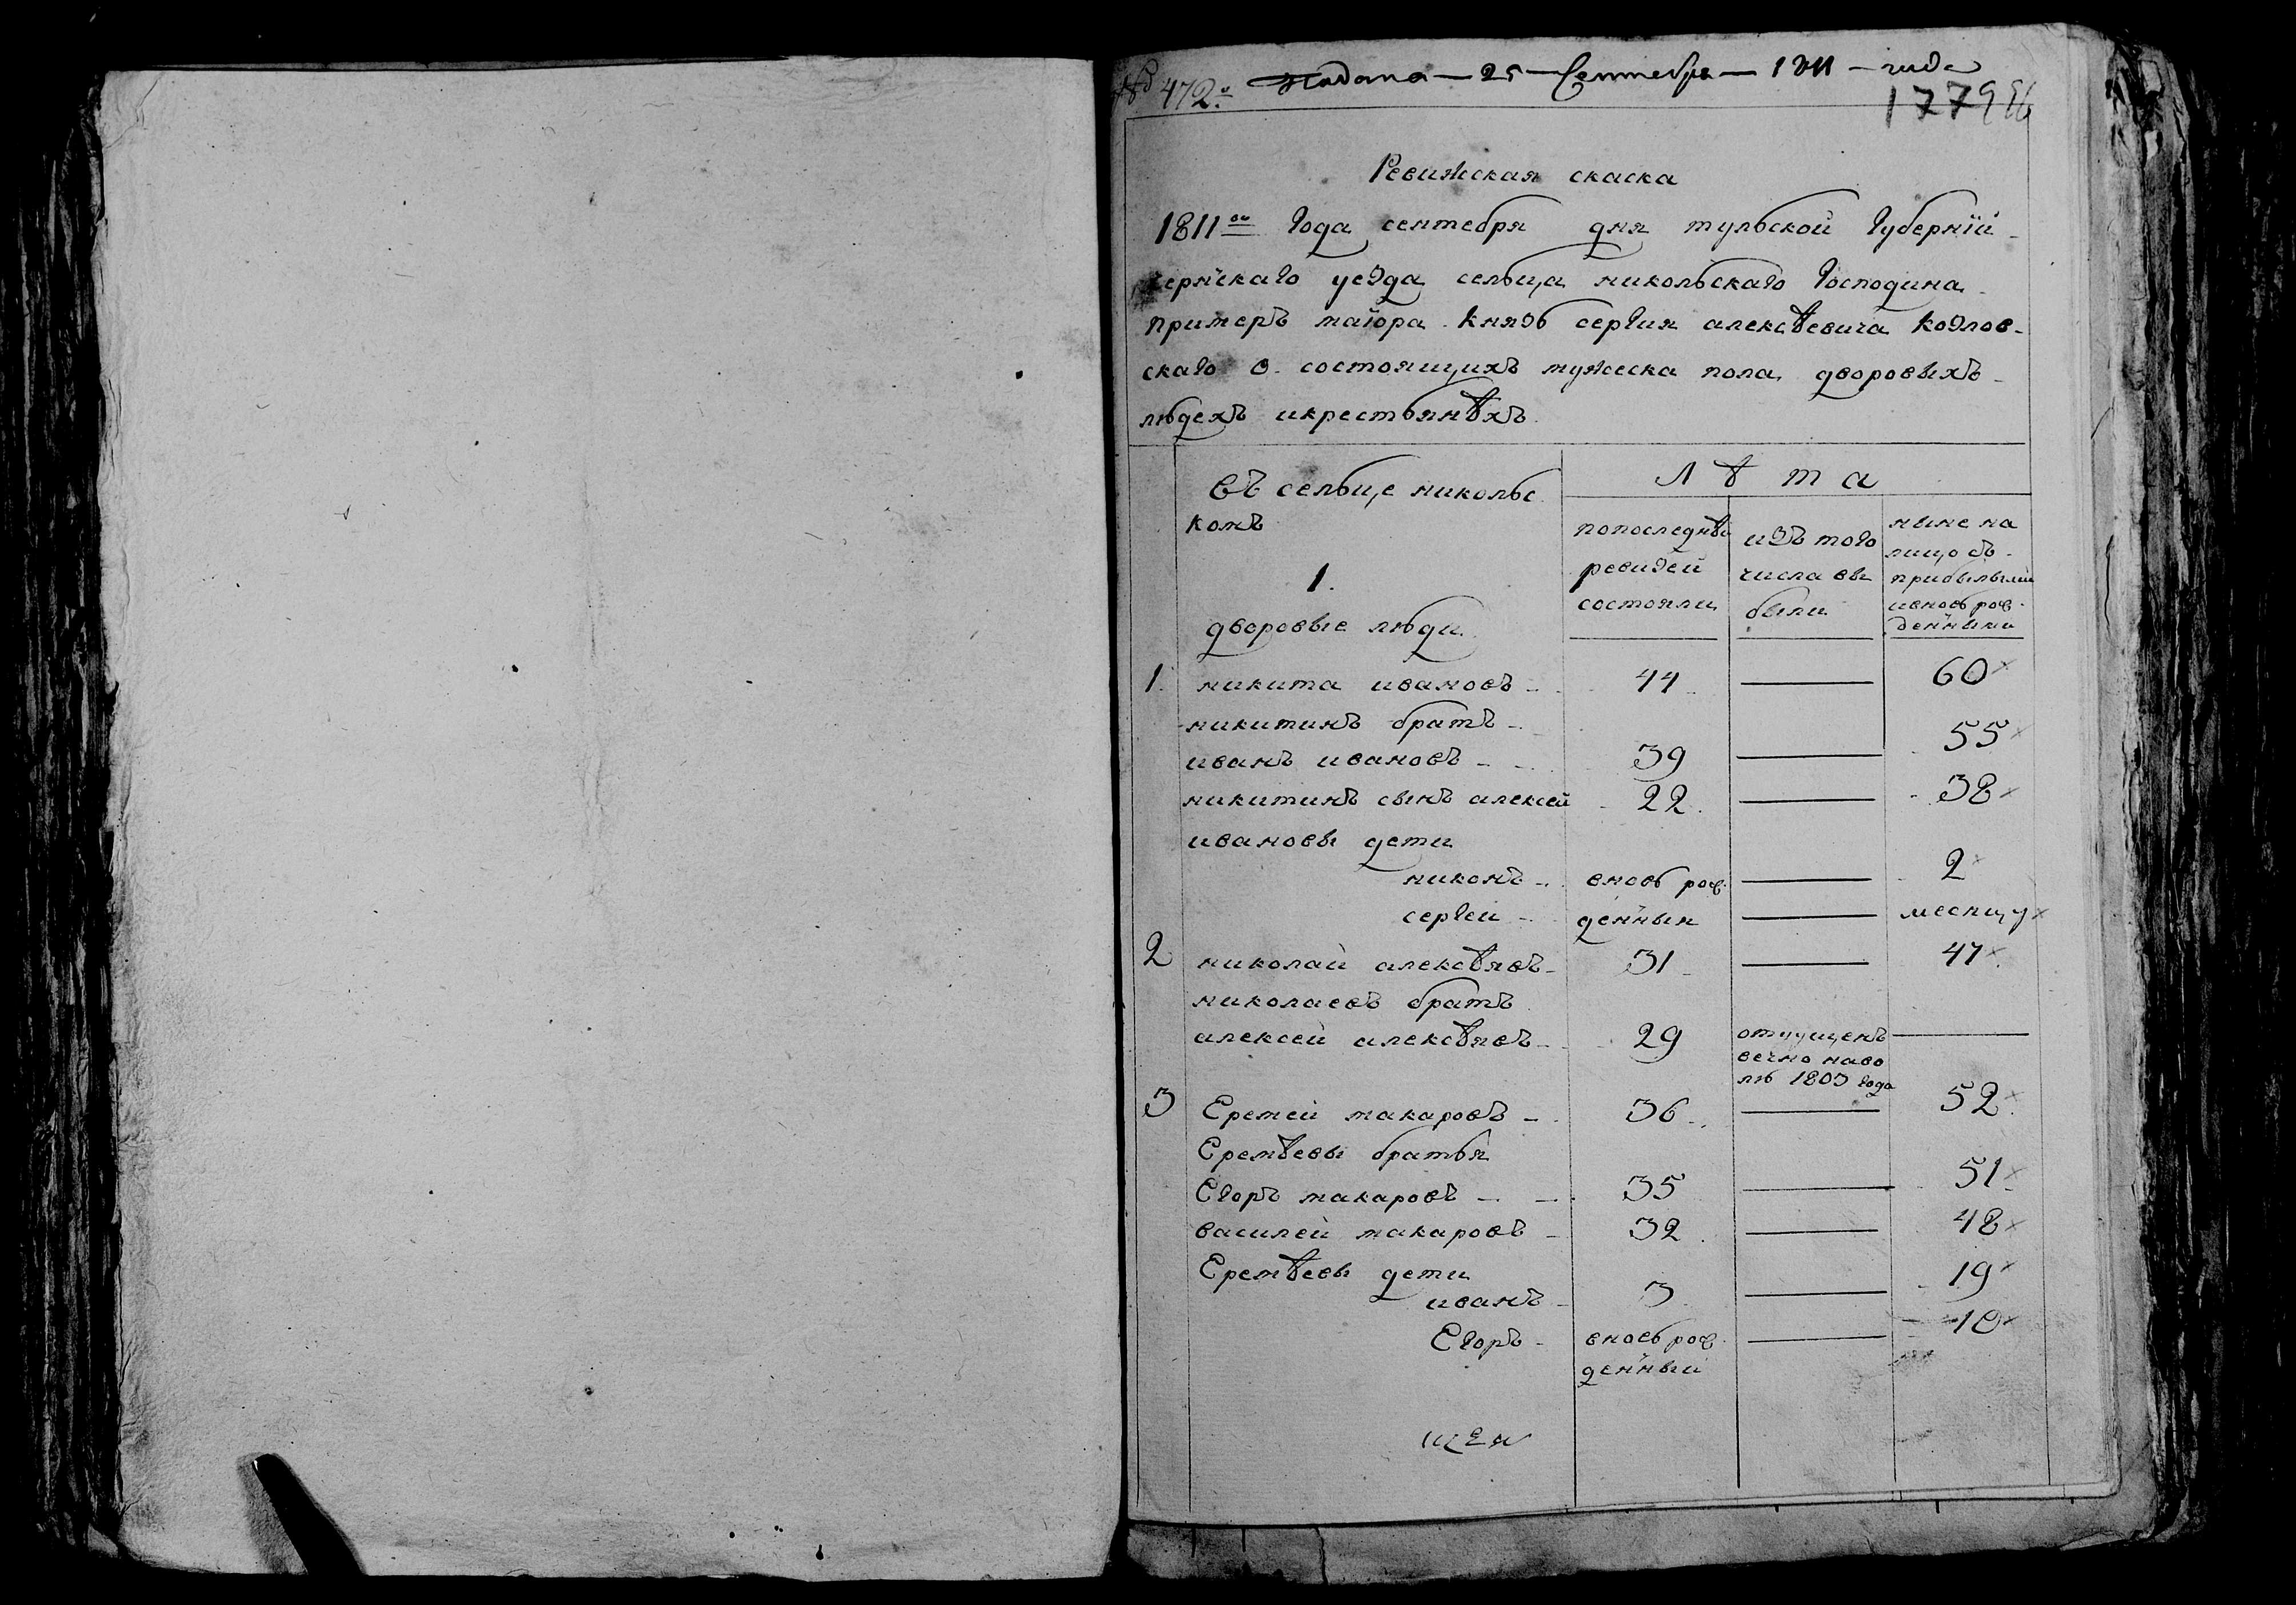 № 472. Подана — 25 — Сентебря — 1811 — года
177
Ревижская скаска
1811го года сентебря дня тульской губернии
чернскаго уезда сельца никольскаго господина
примеръ маiора князь сергия алексѣевича козлов-
скаго о состоящихъ мужеска пола дворовыхъ
людехъ икрестьянѣхъ
въ сельце никольс
комъ
1.
дворовые люди
Л ѣ т а
попоследнѣи ревизеи состояли
изъ того числа вы были
ныне на лицо съ прибылыми ивновь рож денными
1. никита ивановъ 44 — 60
никитинъ братъ
иванъ ивановъ 39 — 55
никитинъ сынъ алексей 22 — 38
ивановы дети
никонъ вновь рож — 2
сергей денныя — месяцу
2 николай алексѣявъ 31 — 47
николаевъ братъ
алексей алексѣявъ 29 отпущенъ вечно наво лю 1803 года —
3 Еремей макаровъ 36 — 52
Еремѣевы братья
Егоръ макаровъ 35 — 51
василей макаровъ 32 — 48
Еремѣевы дети
иванъ 3 — 19
Егоръ вновь рож денный — 10